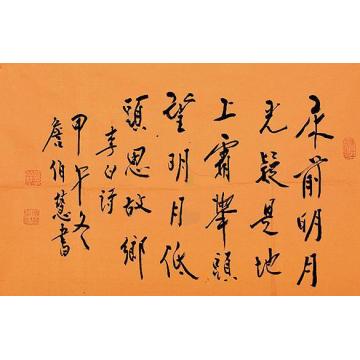 床前明月
光疑是地
上霜舉頭
望明月低
頭思故鄉
李白詩
甲午冬
詹伯慧書